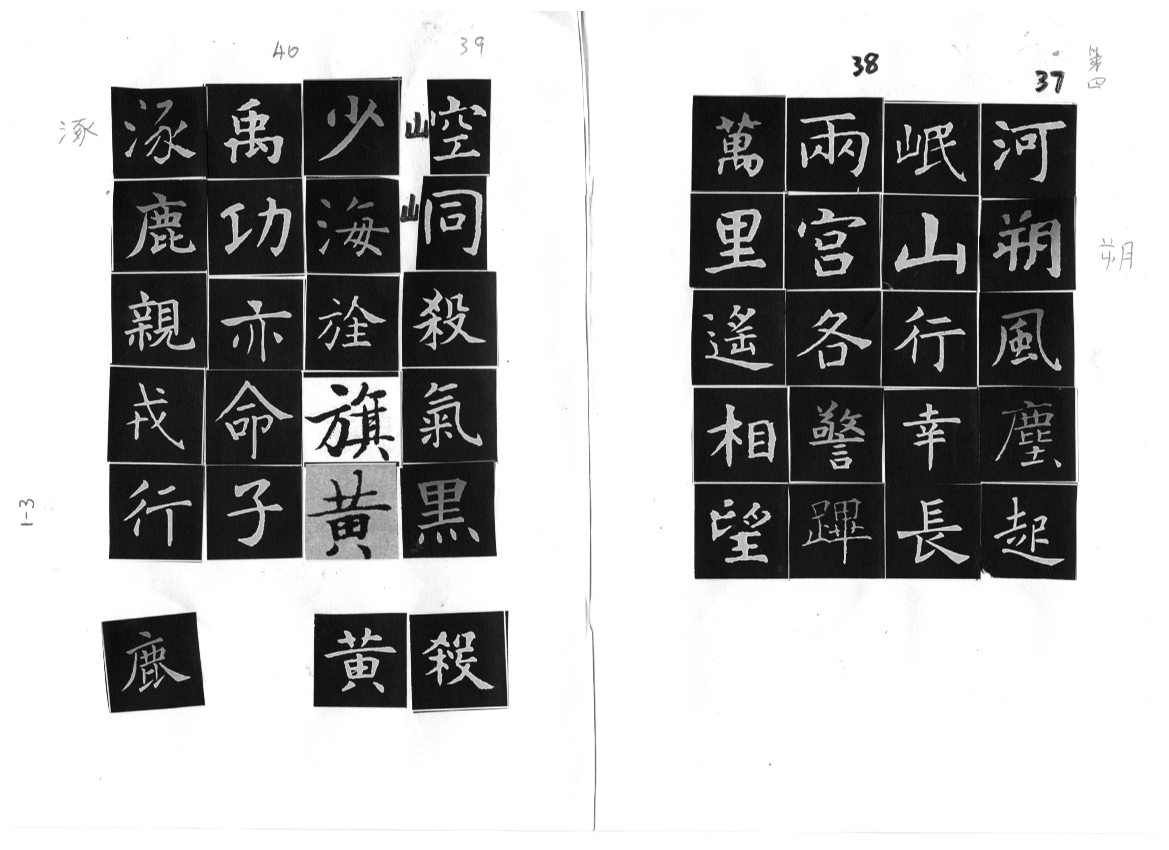 第四
37
38
河朔風塵起
岷山行幸長
兩宮各警蹕
萬里遙相望
朔
39
40
山空山同殺氣黑
少海旌旗黃
禹功亦命子
涿鹿親戎行
涿
殺
黃
鹿
1-3